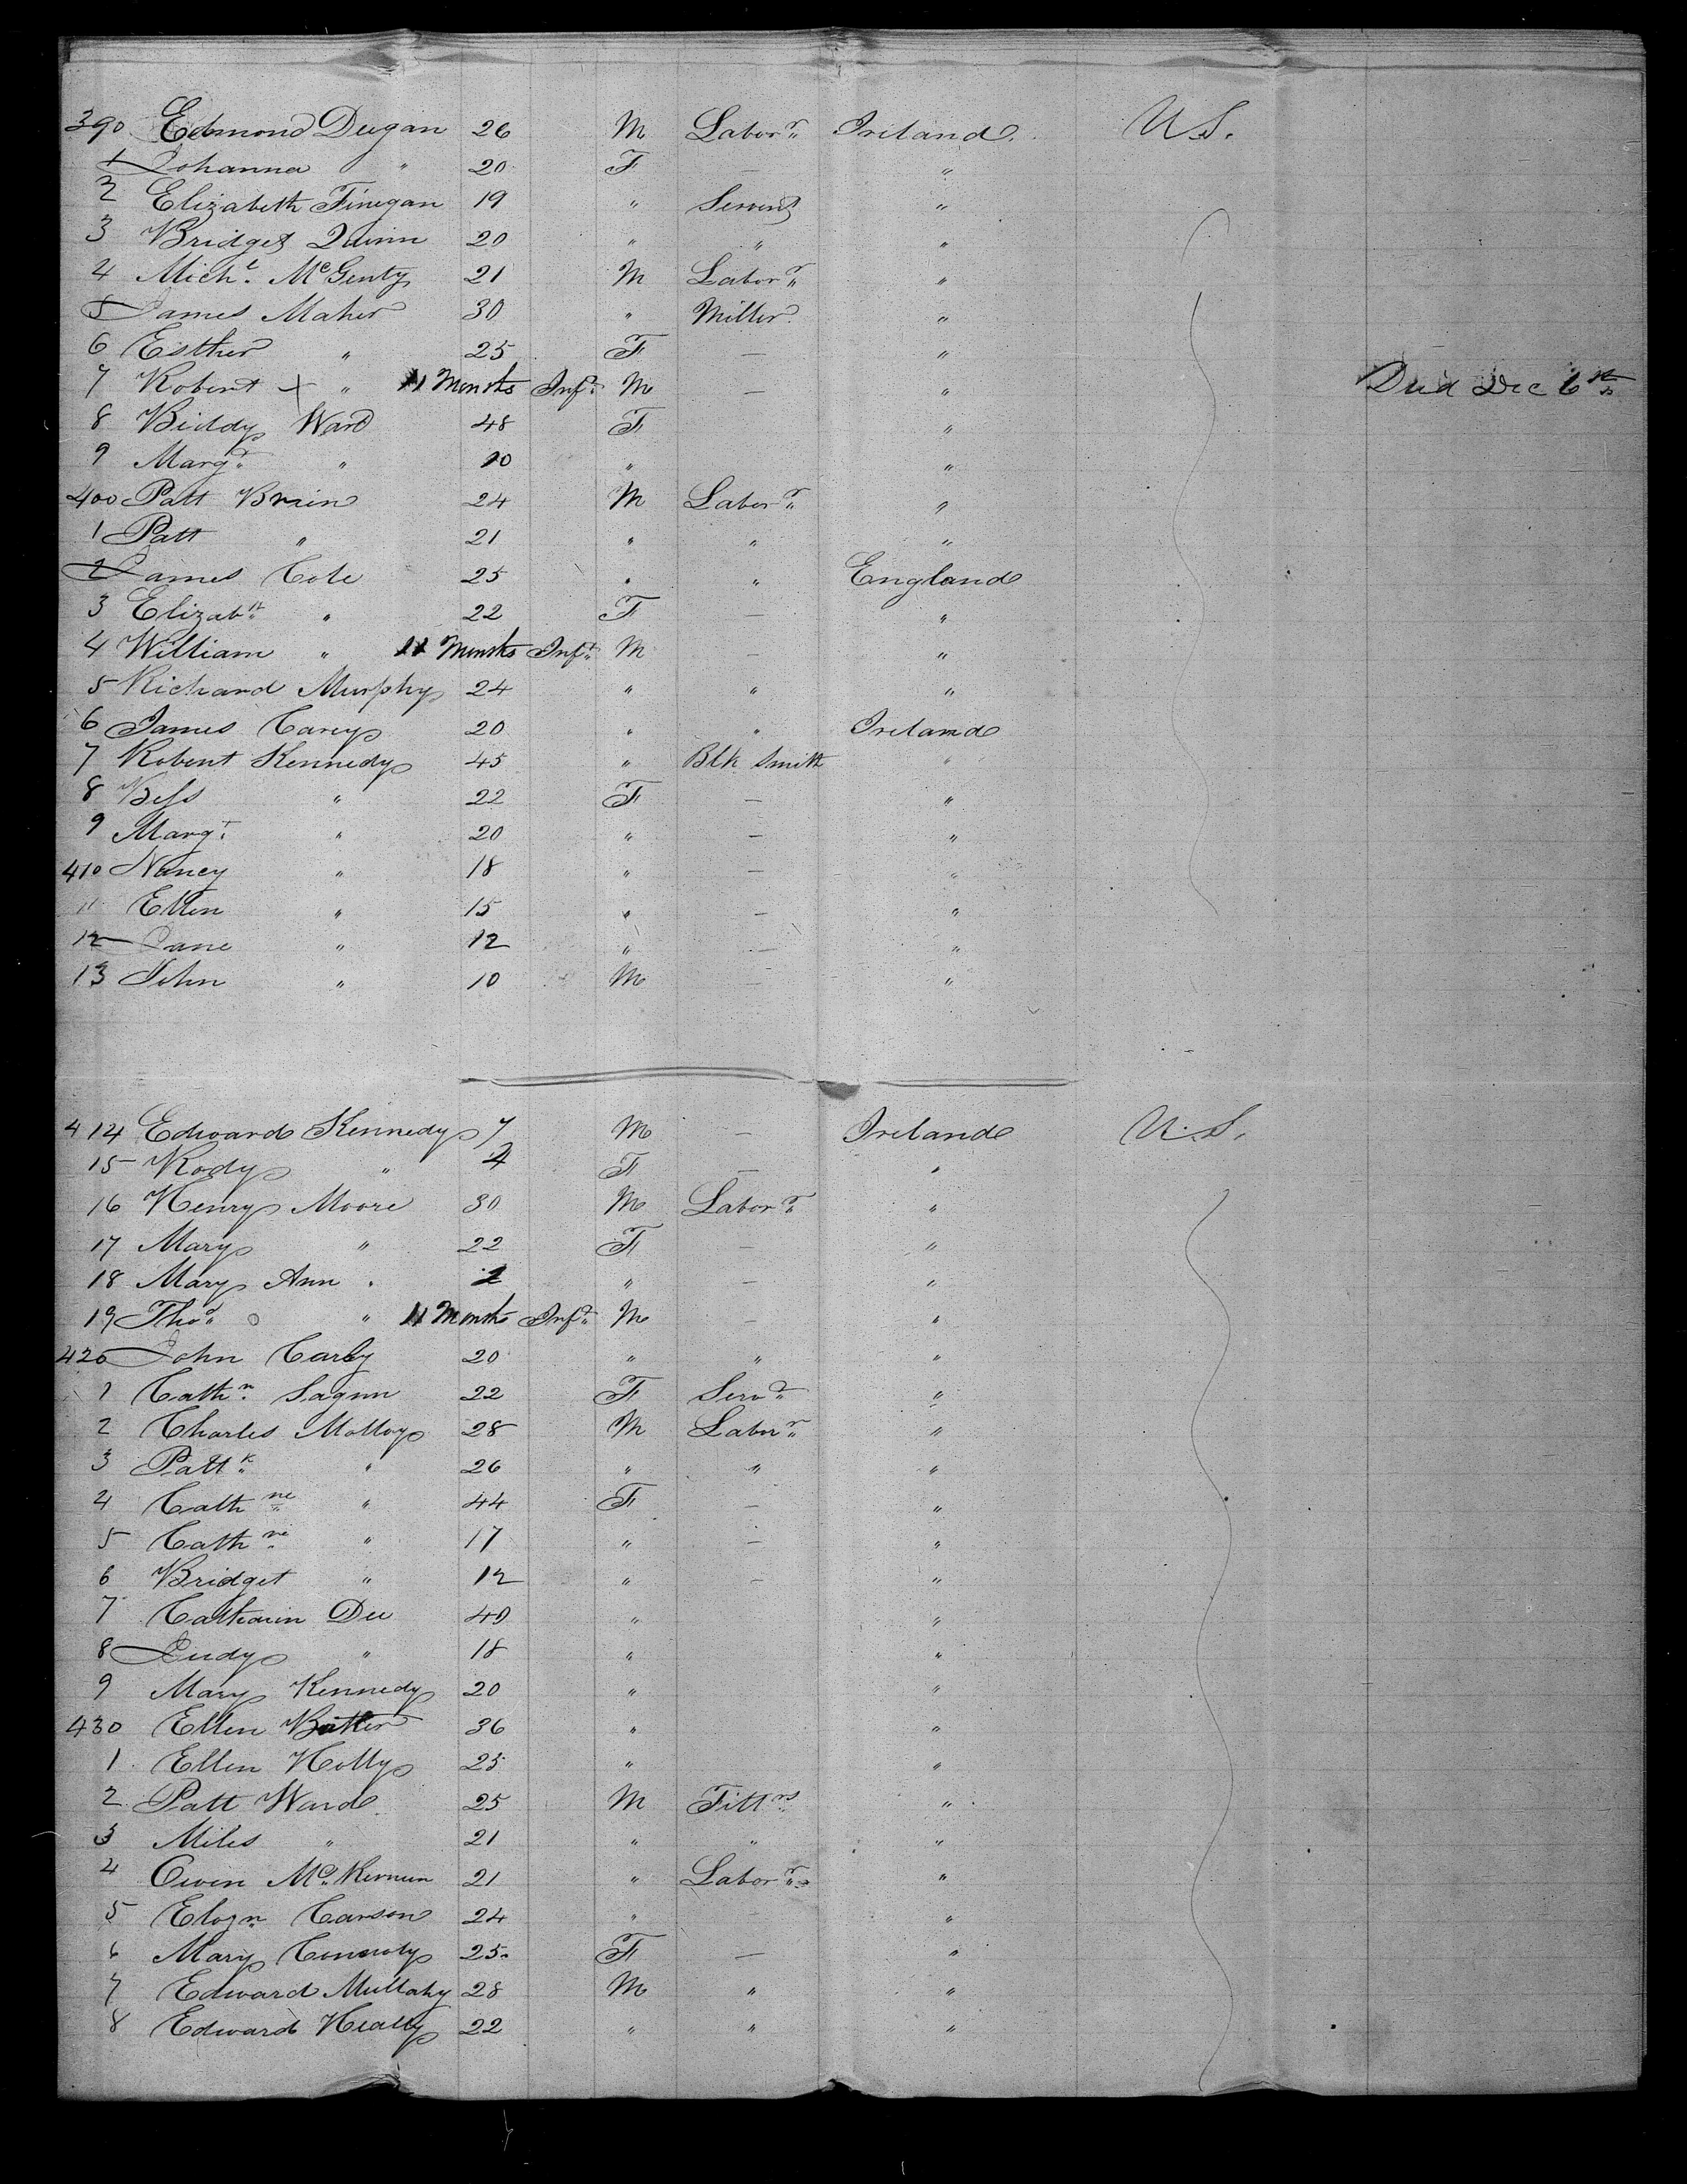 390 Edmond Dugan 26 M Labor.r Ireland U.S.
1 Johanna " 20 F — "
2 Elizabeth Finegan 19 " Servent "
3 Bridget Quinn 20 " " "
4 Mich.l McGenty 21 M Labor.r "
5 James Maher 30 " Miller "
6 Esther " 25 F — "
7 Robert X " 11 Months Inf.t M — " Died Dec 6th
8 Biddy Ward 48 F "
9 Marg.t " 10 " "
400 Patt Brien 24 M Labor.r "
1 Patt " 21 " " "
2 James Cole 25 " " England
3 Elizab.th " 22 F — "
4 William " 11 Months Inf.t M — "
5 Richard Murphy 24 " " "
6 James Carey 20 " " Ireland
7 Robert Kennedy 45 " Blk Smith "
8 Bess " 22 F — "
9 Marg.t " 20 " — "
410 Nancy " 18 " — "
11 Ellen " 15 " — "
12 Jane " 12 " — "
13 John " 10 M — "
414 Edward Kennedy 7 M — Ireland U.S.
15 Rody " 4 F — "
16 Henry Moore 30 M Labor.r "
17 Mary " 22 F — "
18 Mary Ann " 2 " — "
19 Tho.s " 11 Months Inf.t M — "
420 John Carby 20 " " "
1 Cath.n 22 F Serv.t "
2 Charles Molloy 28 M Labor.r "
3 Patt.k " 26 " " "
4 Cath.ne " 44 F — "
5 Cath.ne " 17 " — "
6 Bridget " 12 " — "
7 Catharin Dee 40 " "
8 Judy " 18 " "
9 Mary Kennedy 20 " "
430 Ellen Butler 36 " "
1 Ellen Holly 25 " "
2 Patt Ward 25 M "
3 Miles " 21 " " "
4 Owen Mc.Kernun 21 " Labor.rs "
5 Carson 24 " "
6 Mary Connoly 25 F — "
7 Edward Mullahy 28 M " "
8 Edward Healy 22 " " "